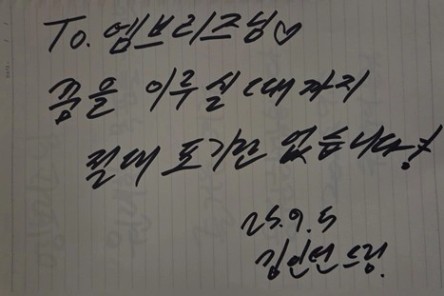 To. 엠브리즈님♡
꿈을 이루실 때까지
절대 포기란 없습니다!
25.9.5
김인선 드림.